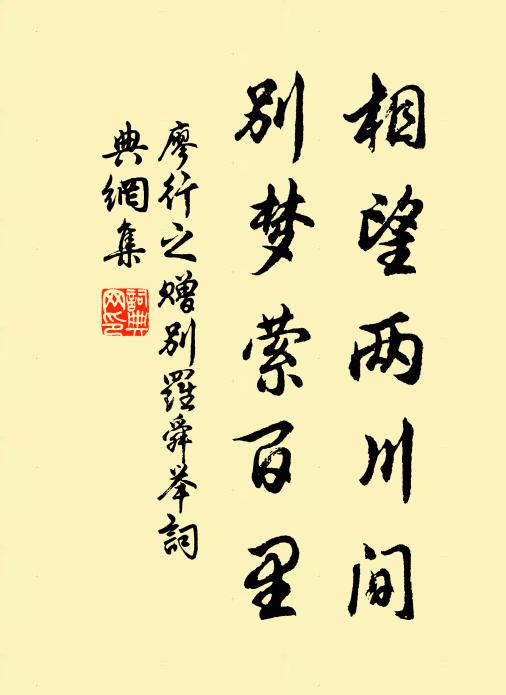 相望两川间
别梦萦百里
廖行之赠别羅舜举詞
典網集
詞典网印